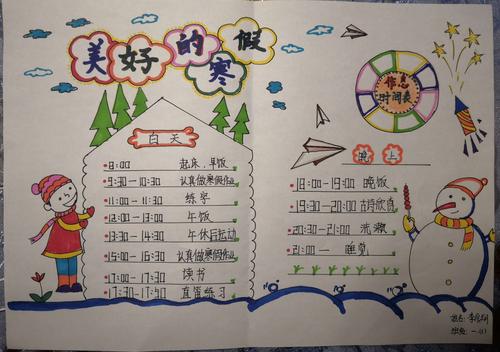 美好的寒假
作息
时间表
白天
8:00 起床、早饭
9:30-10:30 认真做寒假作业
11:00-11:30 练字
12:00-13:00 午饭
13:30-14:30 午休后运动
15:00-16:00 认真做寒假作业
17:00-17:30 读书
17:30-17:50 直笛练习
晚上
18:00-19:00 晚饭
19:30-20:00 古诗欣赏
20:30-21:00 洗漱
21:00— 睡觉
姓名:李
班级:一.(1)